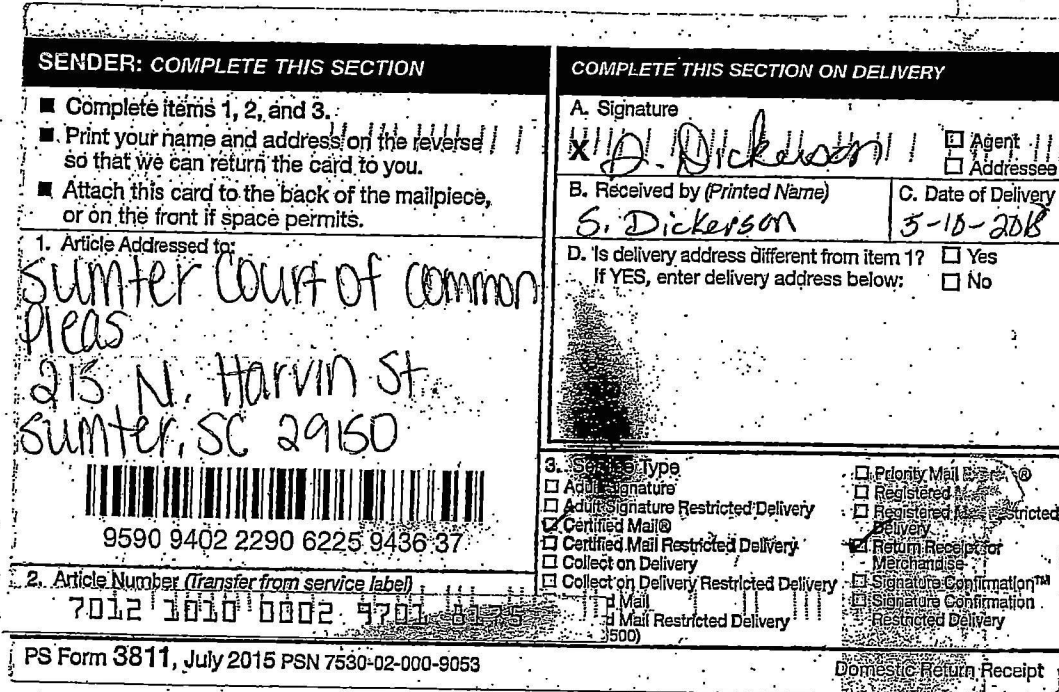 SENDER: COMPLETE THIS SECTION
■ Complete items 1, 2, and 3.
■ Print your name and address on the reverse
so that we can return the card to you.
■ Attach this card to the back of the mailpiece,
or on the front if space permits.
1. Article Addressed to:
Sumter Court of Common
Pleas
215 N. Harvin St.
Sumter, SC 29150
9590 9402 2290 6225 9436 37
2. Article Number (Transfer from service label)
7012 1010 0002 9701 8175
COMPLETE THIS SECTION ON DELIVERY
A. Signature
X Dickerson
☐ Agent
☐ Addressee
B. Received by (Printed Name)
S. Dickerson
C. Date of Delivery
5-10-2018
D. Is delivery address different from item 1? ☐ Yes
If YES, enter delivery address below: ☐ No
3. Service Type
☐ Adult Signature
☐ Adult Signature Restricted Delivery
☑ Certified Mail®
☐ Certified Mail Restricted Delivery
☐ Collect on Delivery
☐ Collect on Delivery Restricted Delivery
d Mail
d Mail Restricted Delivery
500)
☐ Priority Mail
☐ Registered
☐ Registered
Delivery
☑ Return Receipt for
Merchandise
☐ Signature Confirmation™
☐ Signature Confirmation
Restricted Delivery
PS Form 3811, July 2015 PSN 7530-02-000-9053
Domestic Return Receipt